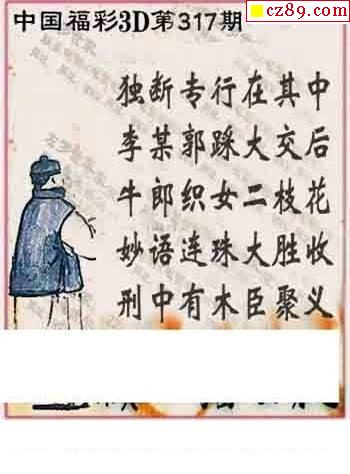 中国福彩3D第317期
cz89.com
独断专行在其中
李某郭踩大交后
牛郎织女二枝花
妙语连珠大胜收
刑中有木臣聚义